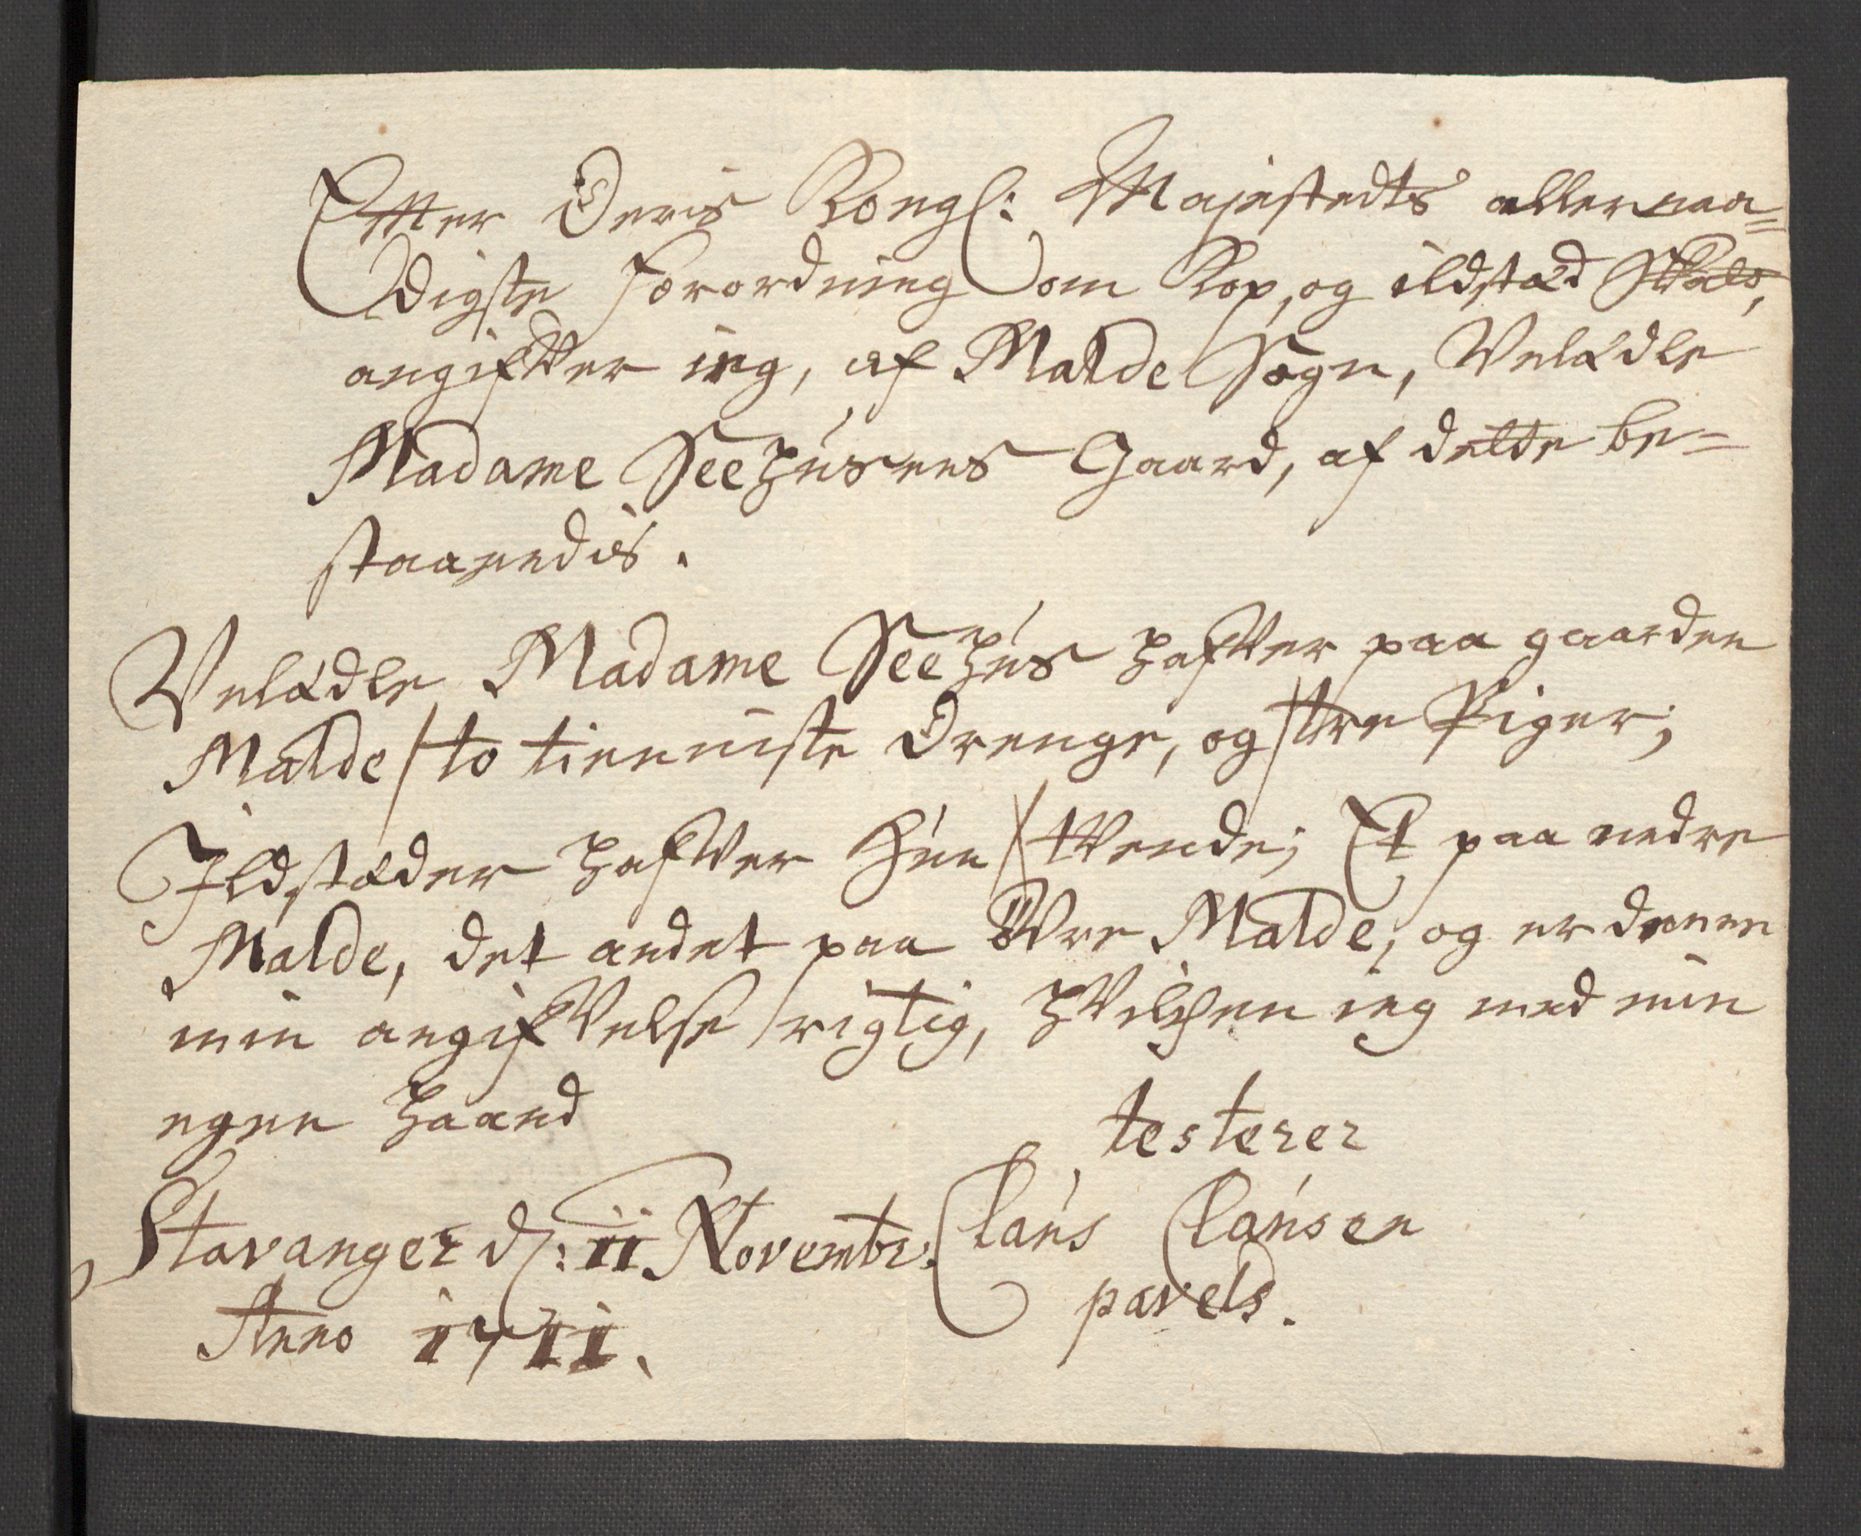 Etter Deris Kongl: Majestedts allernaa=
digste Forordning om Kop, og ildstæd Skatt,
angiftver ieg, af Malde Sogn, Velædle
Madame Seehusens Gaard, af dette be=
staaendis.
Velædle Madame Seehus hafver paa gaarden
Malde / to tienniste Drenge, og / tre Piger;
Ildstæder hafver Hun / tvende; Et paa nedre
Malde, det andet paa övre Malde, og er denne
min angifvelse rigtig, hvilchen ieg med min
egen haand
testerer
Stavanger d: 11 Novembr. Claus Clausen
Anno 1711. pavels.